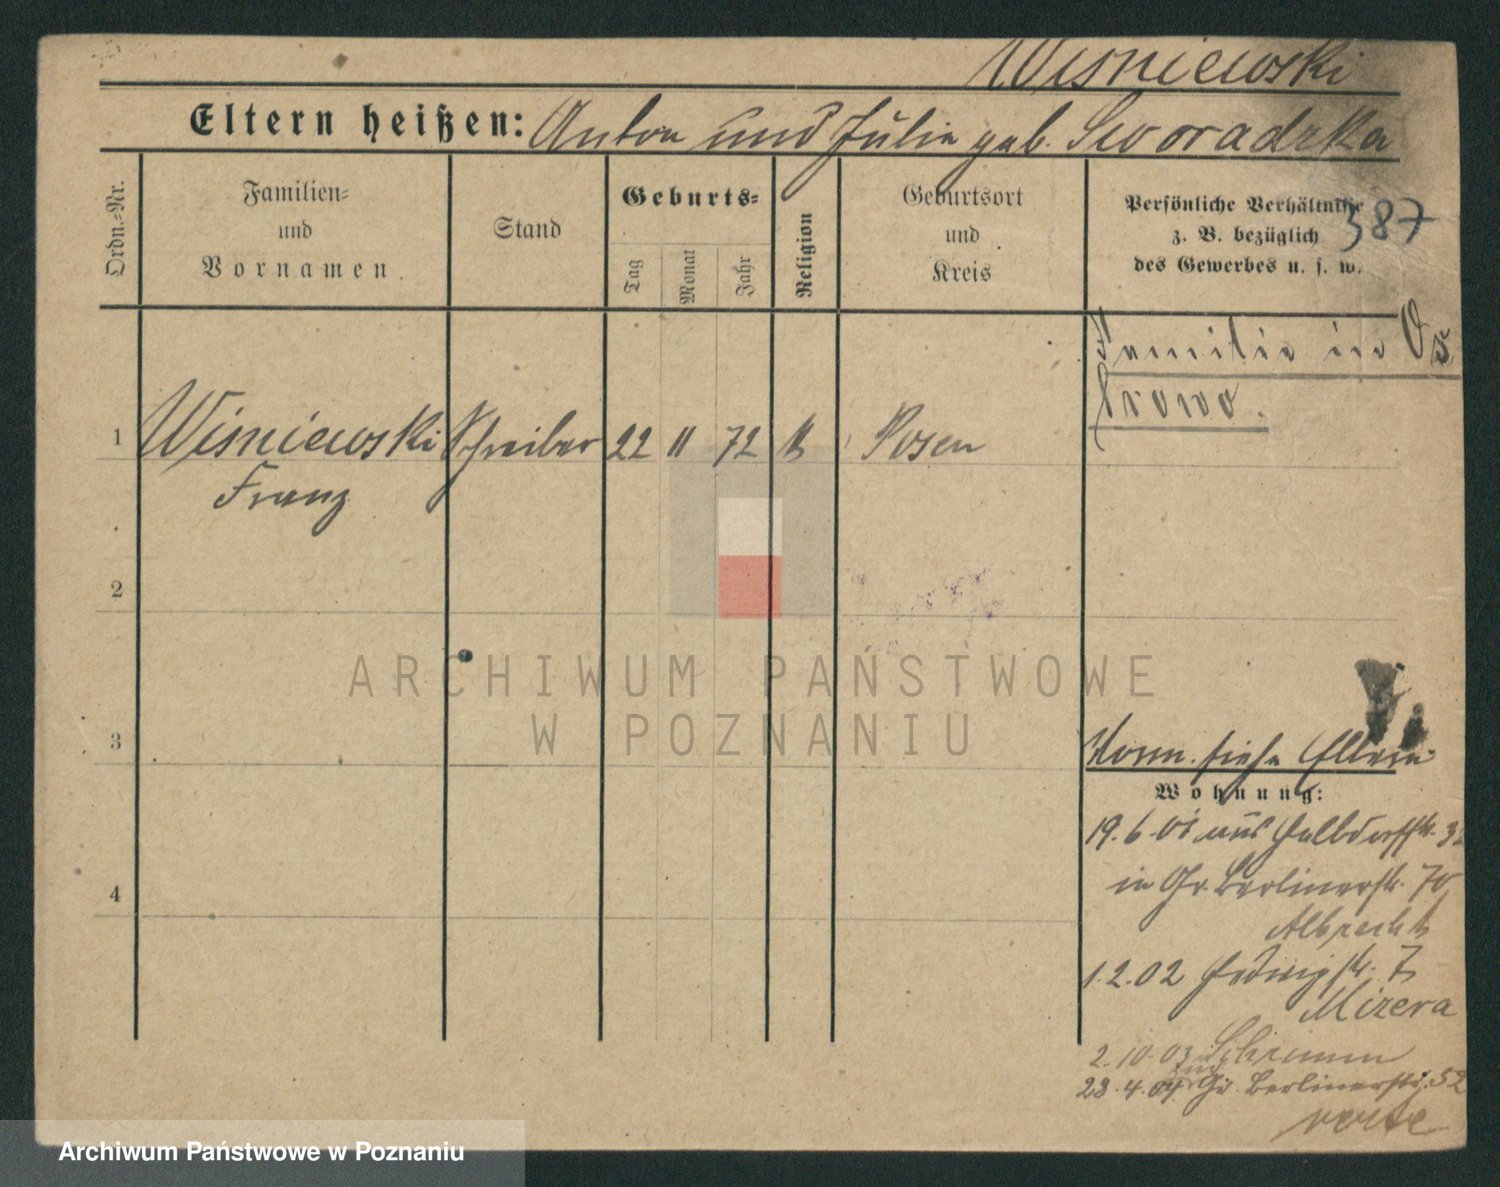 Wisniewski
Eltern heißen: Anton und Julie geb. Sworadzka
Ordn.=Nr.
Familien=
und
Vornamen.
Stand
Geburts=
Tag
Monat
Jahr
Religion
Geburtsort
und
Kreis
Persönliche Verhältnisse
z. B. bezüglich
des Gewerbes u. s. w.
387
Familie in Os
trowo.
1 Wisniewski Schreiber 22 11 72 k Posen
Franz
2
3
4
ARCHIWUM PAŃSTWOWE
W POZNANIU
Vorm. siehe Eltern
Wohnung:
19.6.01 aus Halbdorfstr.
in Gr. Berlinerstr. 70
Albrecht
1.2.02 Hedwigstr. 7
Mizera
2.10.03 Schrimm
23.4.04 Gr. Berlinerstr. 52
verte
Archiwum Państwowe w Poznaniu